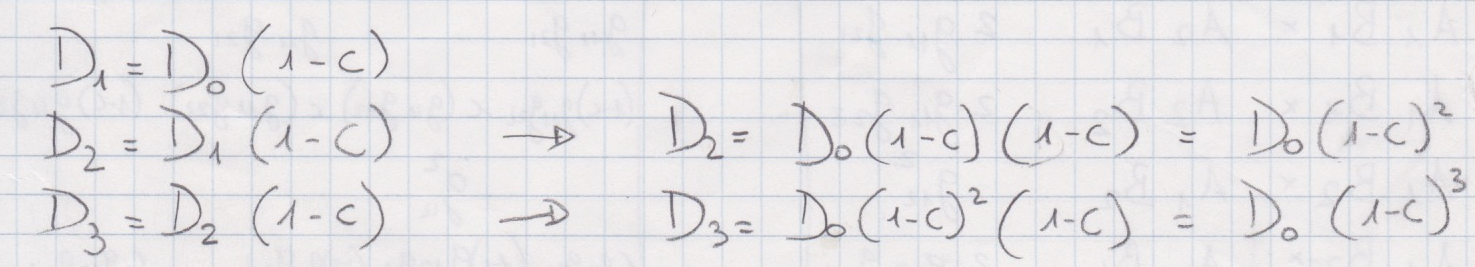 D₁ = D₀ (1-c)
D₂ = D₁ (1-c) → D₂ = D₀ (1-c) (1-c) = D₀ (1-c)²
D₃ = D₂ (1-c) → D₃ = D₀ (1-c)² (1-c) = D₀ (1-c)³